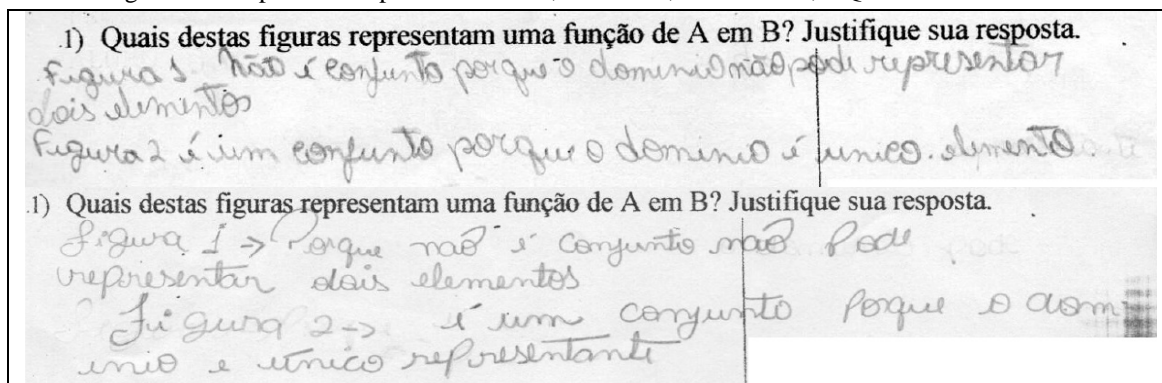 1) Quais destas figuras representam uma função de A em B? Justifique sua resposta.
Figura 1 não é conjunto porque o dominio não pode representar
dois elementos
Figura 2 é um conjunto porque o dominio é unico elemento.
.1) Quais destas figuras representam uma função de A em B? Justifique sua resposta.
Figura 1 → Porque não é conjunto não Pode
representar dois elementos
Figura 2 → é um conjunto Porque o dom
inio e unico representante